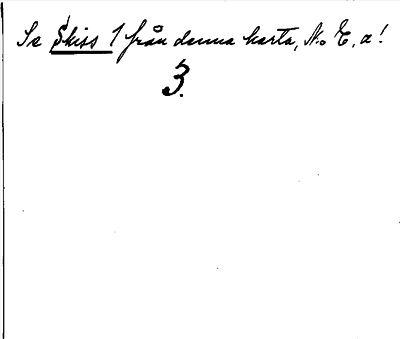 Se Skiss 1 från denna karta, No E, a!
3.